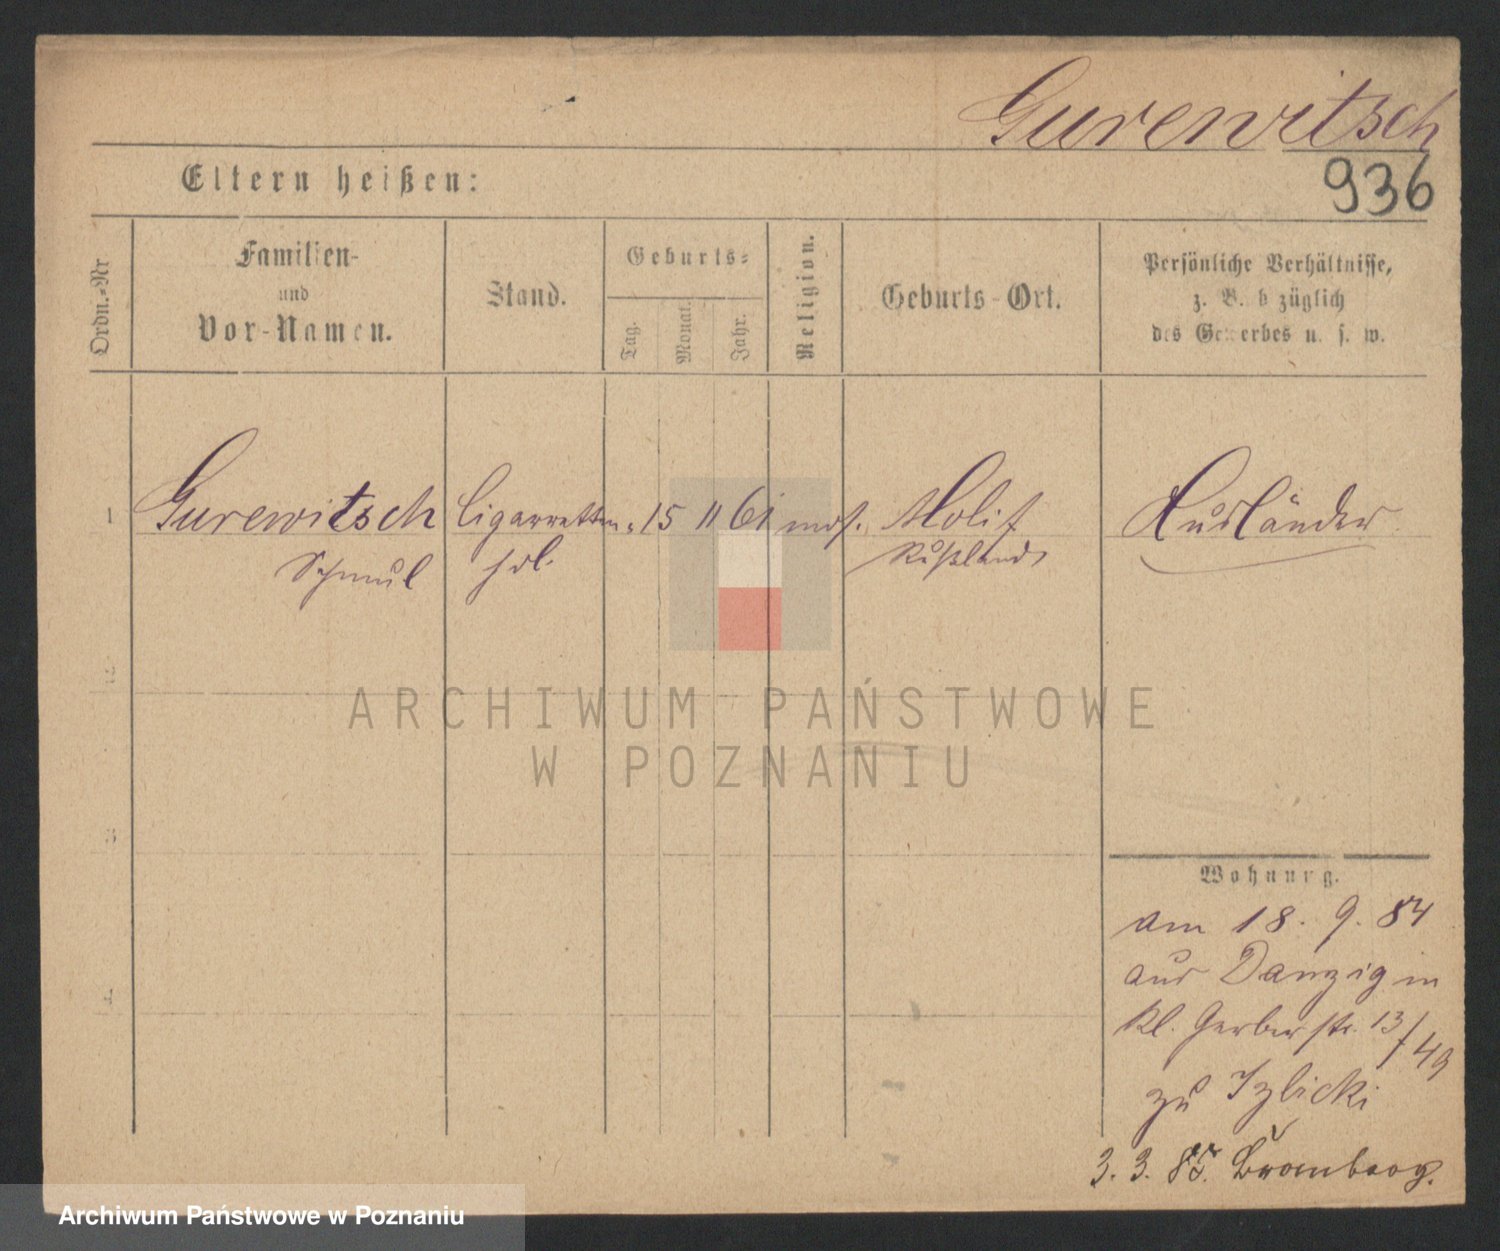 Gurewitsch
936
Eltern heißen:
Ordn.-Nr
Familien-
und
Vor-Namen.
Stand.
Geburts-
Tag.
Monat.
Jahr.
Religion.
Geburts-Ort.
Persönliche Verhältnisse,
z. B. b züglich
des Gewerbes u. s. w.
1 Gurewitsch Cigarretten- 15 11 61 mos. Ausländer
Schmul Rußland
2
3
4
Wohnung.
am 18. 9. 84
aus Danzig in
Kl. Gerberstr. 13/49
zu Izlicki
3. 3. 85. Bromberg.
ARCHIWUM PAŃSTWOWE
W POZNANIU
Archiwum Państwowe w Poznaniu